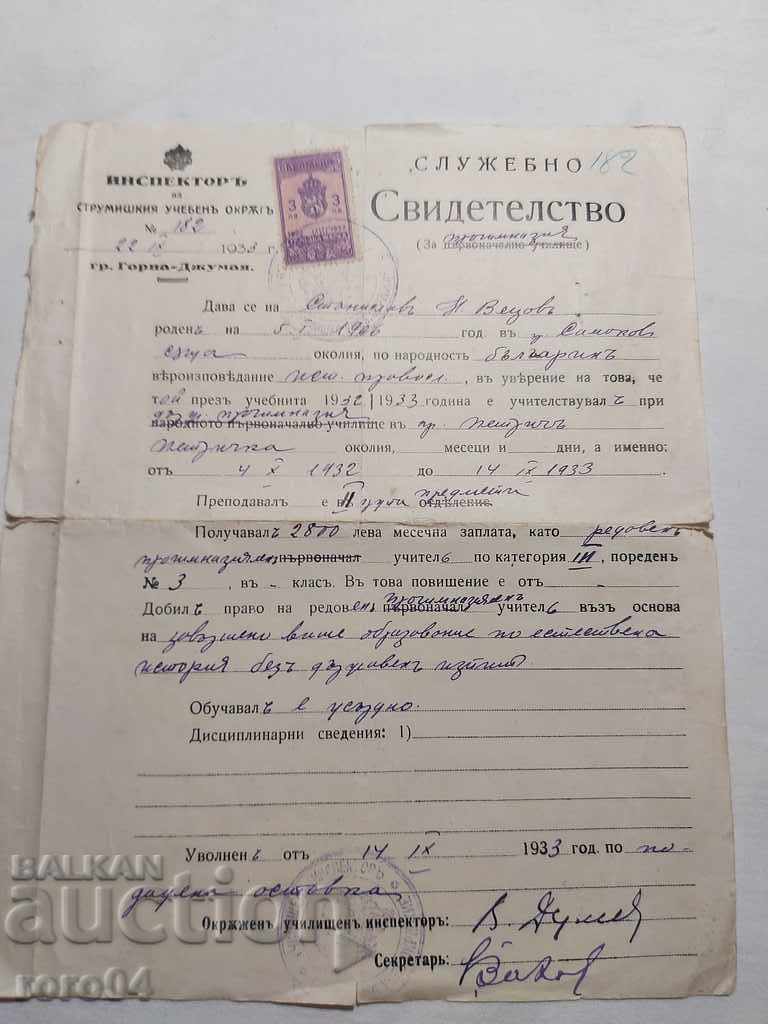 ИНСПЕКТОРЪ
на
СТРУМИШКИЯ УЧЕБЕНЪ ОКРѪГЪ
№ 182
22 IX 1933 г.
гр. Горна-Джумая.
БЪЛГАРИЯ
3 3
ЛВ ЛВ
СЛУЖЕБНО 182
Свидетелство
прогимназия
(За първоначално училище)
Дава се на Станиславъ Н. Вецовъ
роденъ на 5 I 1906 год. в гр. Самоков
сѫща околия, по народность българинъ
вѣроизповѣдание изт. правосл., въ увѣрение на това, че
той презъ учебнита 1932/1933 година е учителствувалъ при
прогимназия
народното първоначално училище въ гр. Петричъ
Петричка околия, месеци и дни, а именно:
отъ 4 X 1932 до 14 IX 1933
Преподавалъ е въ II група предмети отдѣление.
Получавалъ 2800 лева месечна заплата, като редовенъ
прогимназиаленъ първоначал учитель по категория III, пореденъ
№ 3, въ - класъ. Въ това повишение е отъ -
прогимназиаленъ
Добилъ право на редовенъ първоначал учитель възъ основа
на завършено висше образование по естествена
история безъ държавенъ изпит
Обучавалъ е усърдно.
Дисциплинарни сведения: 1)
Уволненъ отъ 14 IX 1933 год. по по-
дадена оставка
Окрѫженъ училищенъ инспекторъ:
Секретарь:
BALKAN
auction
roro04